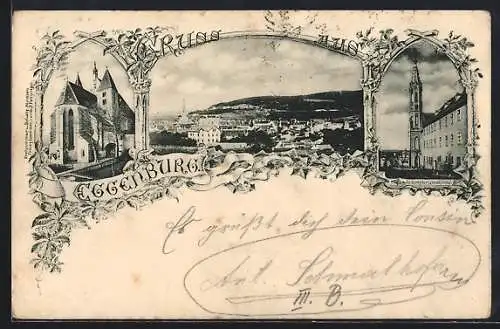 GRUSS AUS
EGGENBURG!
Es grüßt dich dein Cousin
Ant. Schmalhofer
III. B.